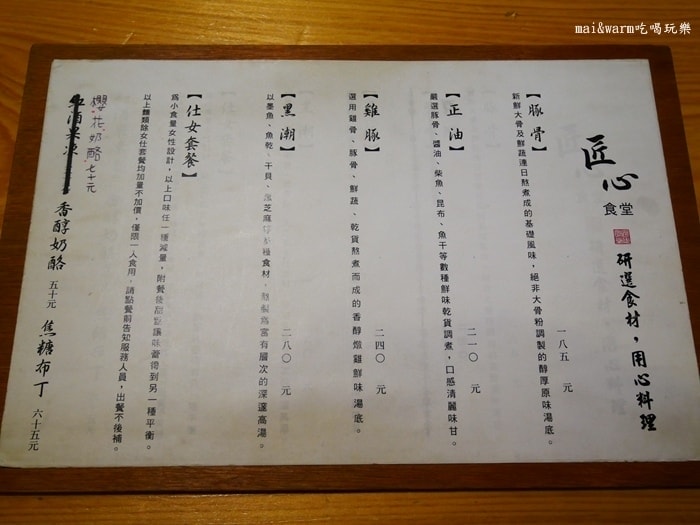 mai&warm吃喝玩樂
匠心
食堂
研選食材，用心料理
【豚骨】
新鮮大骨及鮮蔬連日熬煮成的基礎風味，絕非大骨粉調製的醇厚原味湯底。
一八五 元
【正油】
嚴選豚骨、醬油、柴魚、昆布、魚干等數種鮮味乾貨調煮，口感清麗味甘。
二一〇 元
【雞豚】
選用雞骨、豚骨、鮮蔬、乾貨熬煮而成的香醇燉雞鮮味湯底。
二四〇 元
【黑潮】
以墨魚、魚乾、干貝、黑芝麻等多種食材，熬製為富有層次的深邃高湯。
二八〇 元
【仕女套餐】
為小食量女性設計，以上口味任一種減量，附餐後甜點讓味蕾得到另一種平衡。
以上麵類除女仕套餐均加量不加價，僅限一人食用，請點餐前告知服務人員，出餐不後補。
櫻花奶酪 七十元
紅酒果凍
香醇奶酪 五十元 焦糖布丁 六十五元